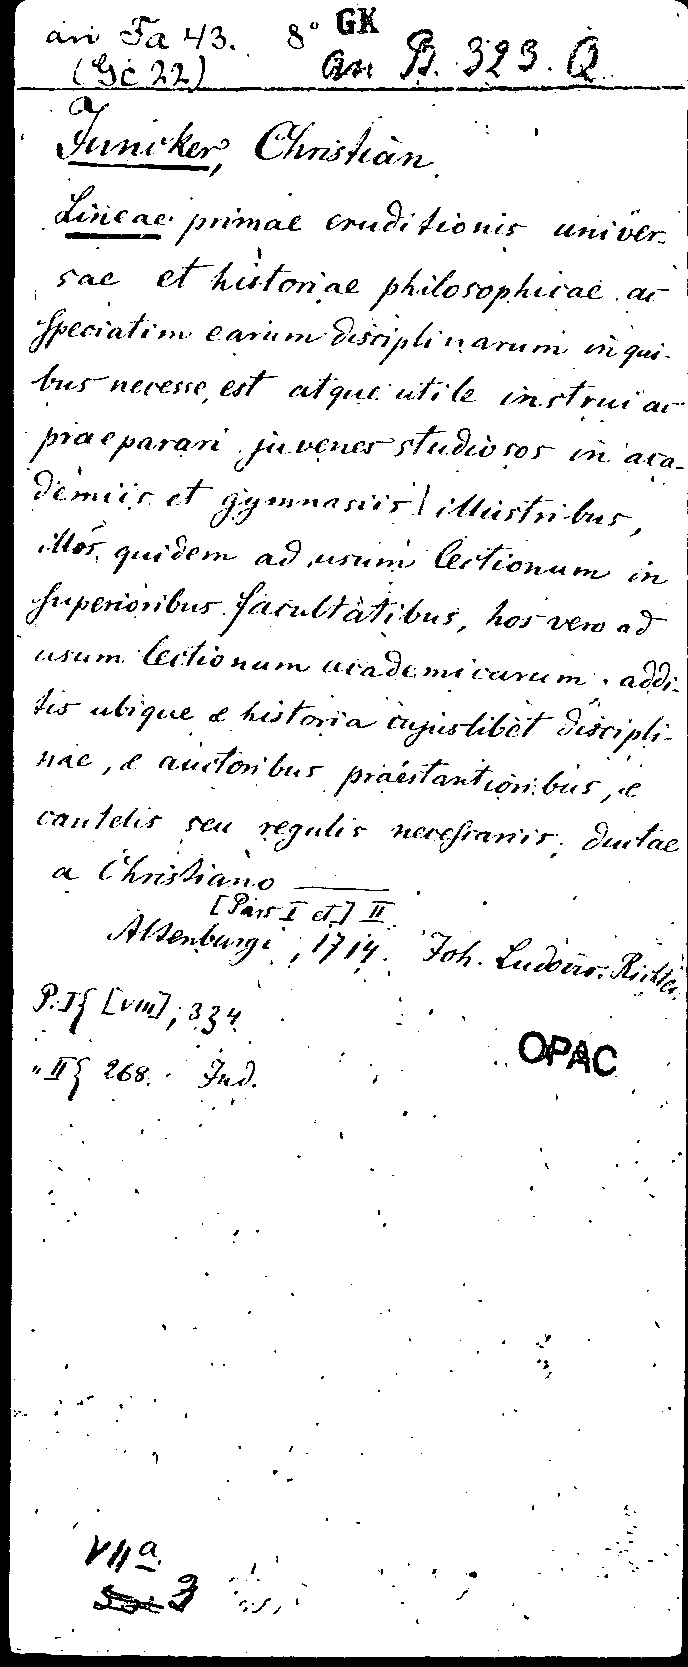 an Fa 43. 8° GK
(Gc 22) an B. 323. Q
Juncker, Christian.
Lineae primae eruditionis univer-
sae et historiae philosophicae ac
speciatim earum disciplinarum in qui-
bus necesse est atque utile instrui ac
praeparari juvenes studiosos in aca-
demiis et gymnasiis illustribus,
illos quidem ad usum lectionum in
superioribus facultatibus, hos vero ad
usum lectionum academicarum. addi-
tis ubique & historia cujuslibet discipli-
nae, & auctoribus praestantioribus, &
cautelis seu regulis necessariis; ductae
a Christiano ———
[Pars I et] II
Altenburgi, 1714. Joh. Ludov. Richter.
P. I { [VIII], 334
" II { 268. Ind.
OPAC
VII a
3